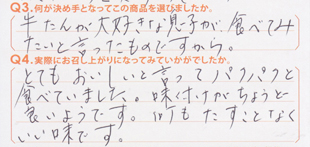 Q3.何が決め手となってこの商品を選びましたか。
牛たんが大好きな息子が食べてみ
たいと言ったものですから。
Q4.実際にお召し上がりになってみていかがでしたか。
とてもおいしいと言ってパクパクと
食べていました。味付けがちょうど
良いようです。何もたすことなく
いい味です。